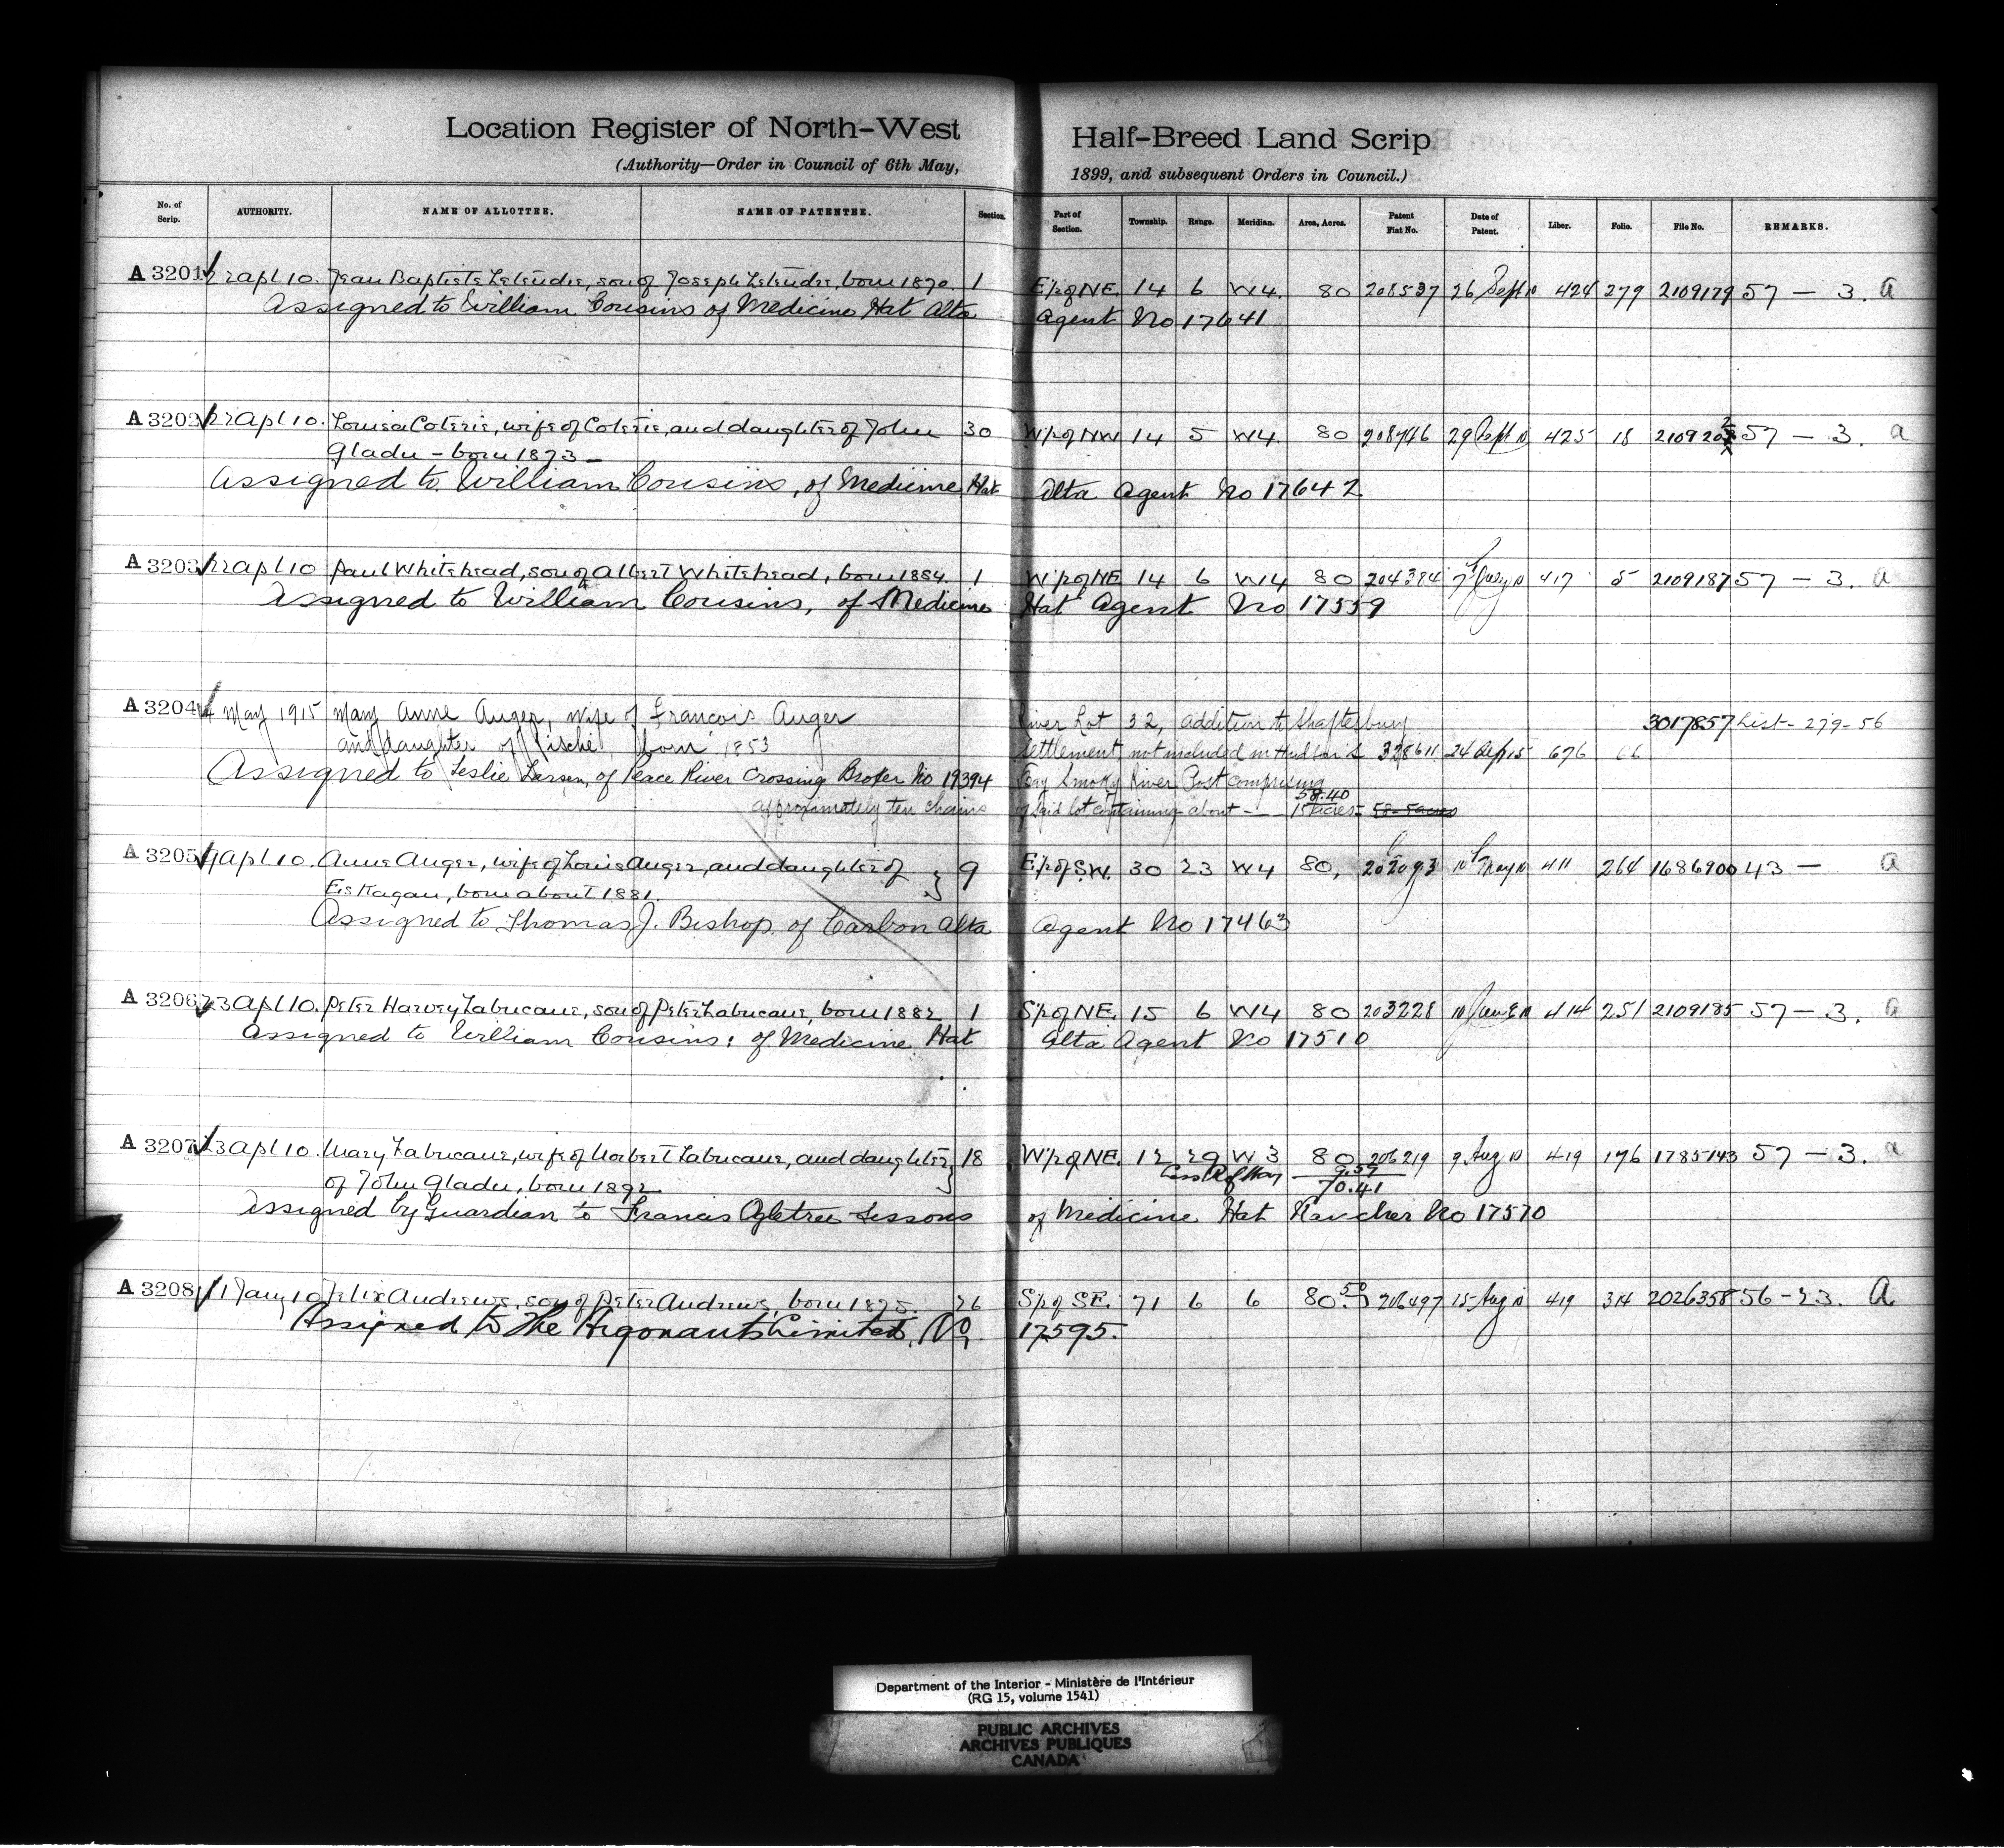 Location Register of North-West Half-Breed Land Scrip
(Authority—Order in Council of 6th May, 1899, and subsequent Orders in Council.)
No. of Scrip. AUTHORITY. NAME OF ALLOTTEE. NAME OF PATENTEE. Section. Part of Section. Township. Range. Meridian. Area, Acres. Patent Fiat No. Date of Patent. Liber. Folio. File No. REMARKS.
A 3201 22 Apl 10. Jean Baptiste Letendre, son of Joseph Letendre, born 1870. 1 E½ of NE. 14 6 W4. 80 208537 26 Sept 10 424 279 2109179 57 — 3. a
Assigned to William Cousins of Medicine Hat Alta Agent No 17641
A 3202 22 Apl 10. Louisa Coterie, wife of Coterie, and daughter of John 30 W½ of NW 14 5 W4. 80 208746 29 Sept 10 425 18 2109202 57 — 3. a
Gladu - born 1873 -
Assigned to William Cousins, of Medicine Hat Alta Agent No 17642
A 3203 22 Apl 10 Paul Whitehead, son of Albert Whitehead, born 1884. 1 W½ of NE 14 6 W4 80 204384 7 July 10 417 5 2109187 57 — 3. a
Assigned to William Cousins, of Medicine Hat Agent No 17559
A 3204 4 May 1915 Mary Anne Auger, wife of Francois Auger River Lot 32, addition to Shaftesbury 3017857 List - 279 - 56
and daughter of Pische, born 1853 Settlement, not included in Hudson's 328611 24 Sep 15 676 66
Assigned to Leslie Larsen, of Peace River Crossing Broker No 19394 Bay Smoky River Post comprising
58.40
approximately ten chains of said lot containing about — 15 acres 58.5 acres
A 3205 9 Apl 10. Anne Auger, wife of Louis Auger, and daughter of 9 E½ of S.W. 30 23 W4 80, 202093 10 May 10 411 264 1686900 43 — a
Eiskagan, born about 1881.
Assigned to Thomas J. Bishop of Carbon Alta Agent No 17463
A 3206 23 Apl 10. Peter Harvey Labucane, son of Peter Labucane, born 1882 1 S½ of NE. 15 6 W4 80 203228 10 June 10 414 251 2109185 57 — 3. a
Assigned to William Cousins, of Medicine Hat Alta Agent No 17510
A 3207 23 Apl 10. Mary Labucane, wife of Norbert Labucane, and daughter 18 W½ of NE. 12 29 W3 80 206219 9 Aug 10 419 176 1785143 57 — 3. a
of John Gladu, born 1892 Less R of Way 9.59
70.41
Assigned by Guardian to Francis Ogletree Sissons of Medicine Hat Rancher No 17570
A 3208 11 Jany 10 Felix Andrews, son of Peter Andrews, born 1875. 26 S½ of SE. 71 6 6 80.50 206497 15 Aug 10 419 314 2026358 56 - 23. a
Assigned to The Argonauts Limited, No 17595.
Department of the Interior - Ministère de l'Intérieur
(RG 15, volume 1541)
PUBLIC ARCHIVES
ARCHIVES PUBLIQUES
CANADA